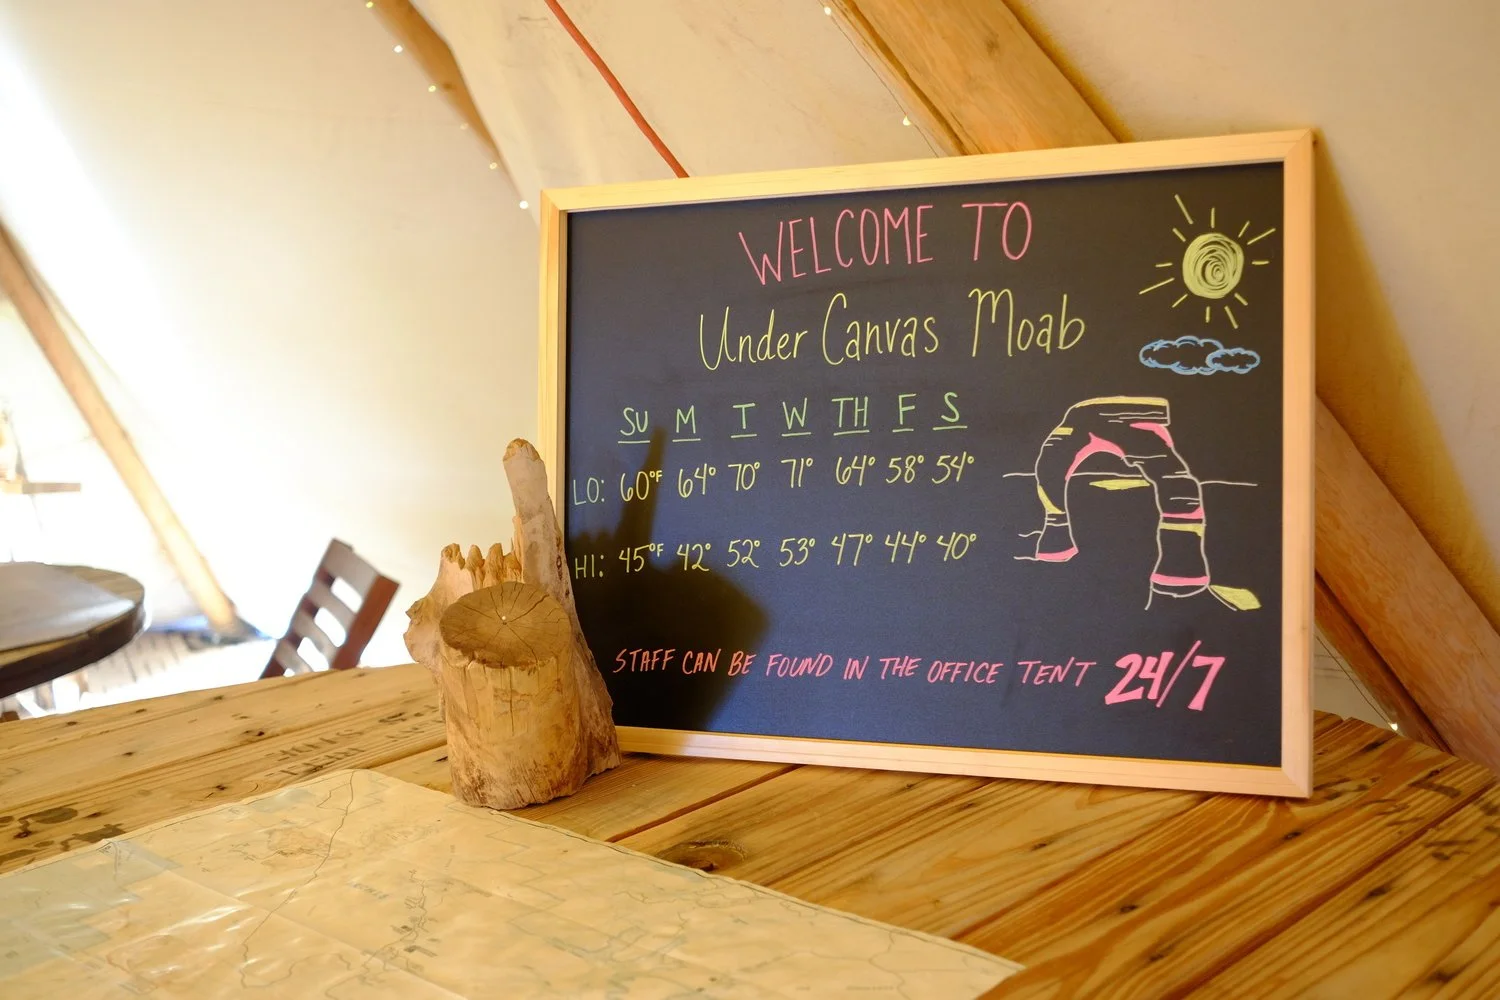 WELCOME TO
Under Canvas Moab
SU M T W TH F S
LO: 60°F 64° 70° 71° 64° 58° 54°
HI: 45°F 42° 52° 53° 47° 44° 40°
STAFF CAN BE FOUND IN THE OFFICE TENT 24/7